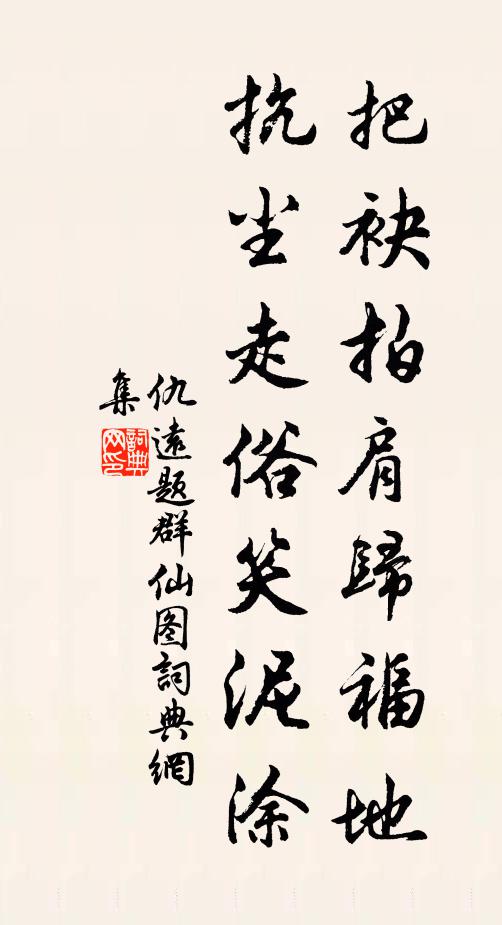 把袂拍肩歸福地
抗尘走俗笑泥涂
仇遠题群仙图詞典網
集
詞典网印